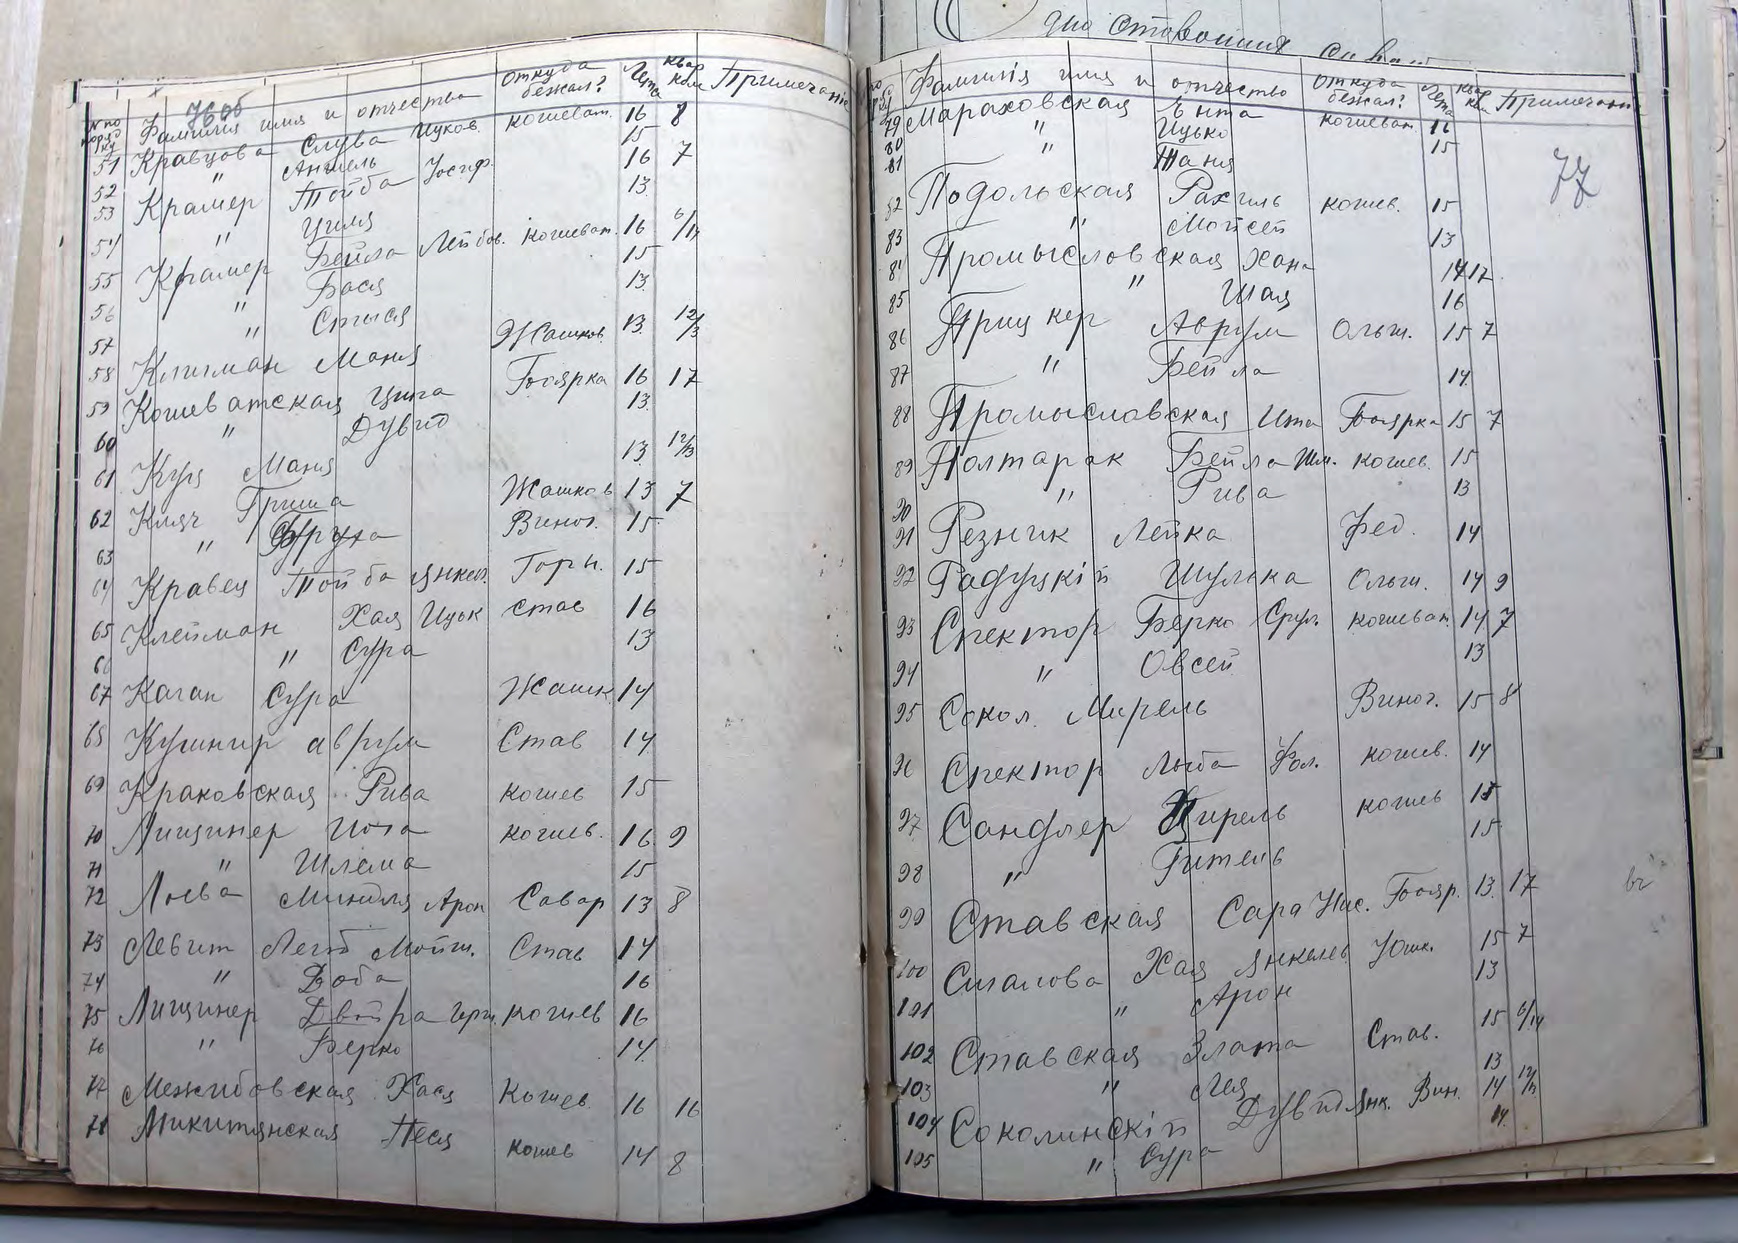 76об
№ по порядку Фамилія имя и отчество откуда бежал? Лета квар ком Примечаніе
51 Кравцова Слува Ицков. кошеват. 16 8
52 " Аншель 15
53 Крамер Тойба Іосиф. 16 7
54 " Циля 13
55 Крамер Бейла Лейбов. кошеват. 16 6/17
56 " Бася 15
57 " Стыся 13
58 Клигман Маня Жашков 13 12/3
59 КошеватскаяЦипа Боярка 16 17
60 " Дувид 13
61 Куц Маня 13 12/13
62 Кияч Гриша Жашков 13 7
63 " Бруха Виног. 15
64 Кравец Тойба Янкел. Горн. 15
65 Клейман Хая Ицьк Став 16
66 " Сура 13
67 Каган Сура Жашк 14
68 Кушнир аврум Став 14
69 Краковская Рива кошев 15
70 Лищинер Иоса кошев. 16 9
71 " Шлема 15
72 Лоева Миндля Арон Савар 13 8
73 Левит Лейб Мойш. Став 14
74 " Доба 16
75 Лищинер Двойра Герш. кошев 16
76 " Берко 14
77 Межибовская Хася Кошев. 16 16
78 Микитянская Песя кошев 14 8
дно
77
Фамилія имя и отчество откуда бежал? Лета квар ком Примечание
79 Мараховская Ента кошеват. 16
80 " Ицько 15
81 " Таня
82 Подольская Рахиль кошев. 15
83 " Мойсей 13
84 Промысловская Хана 14 17
85 " Шая 16
86 Прицкер Аврум Ольш. 15 7
87 " Бейла 14
88 Промысловская Ита Боярка 15 7
89 Полтарак Бейла Шм. кошев. 15
90 " Рива 13
91 Резник Лейка Фед. 14
92 Радуцкій Шулька Ольш. 14 9
93 Спектор Берко Срул. кошеват. 14 7
94 " Овсей 13
95 Сокол. Мирель Виног. 15 8
96 Спектор Лыба Фол. кошев. 14
97 Сандлер Цирель кошев 18
98 " Гитель 15
99 Ставская Сара Нас. Бояр. 13 17
100 Сигалова Хая Янкелев Юшк. 15 7
101 " Арон 13
102 Ставская Злата Став. 15 6/14
103 " Лея 13
104 Соколинскій Дувид Янк. Вин. 14
105 " Сура 14